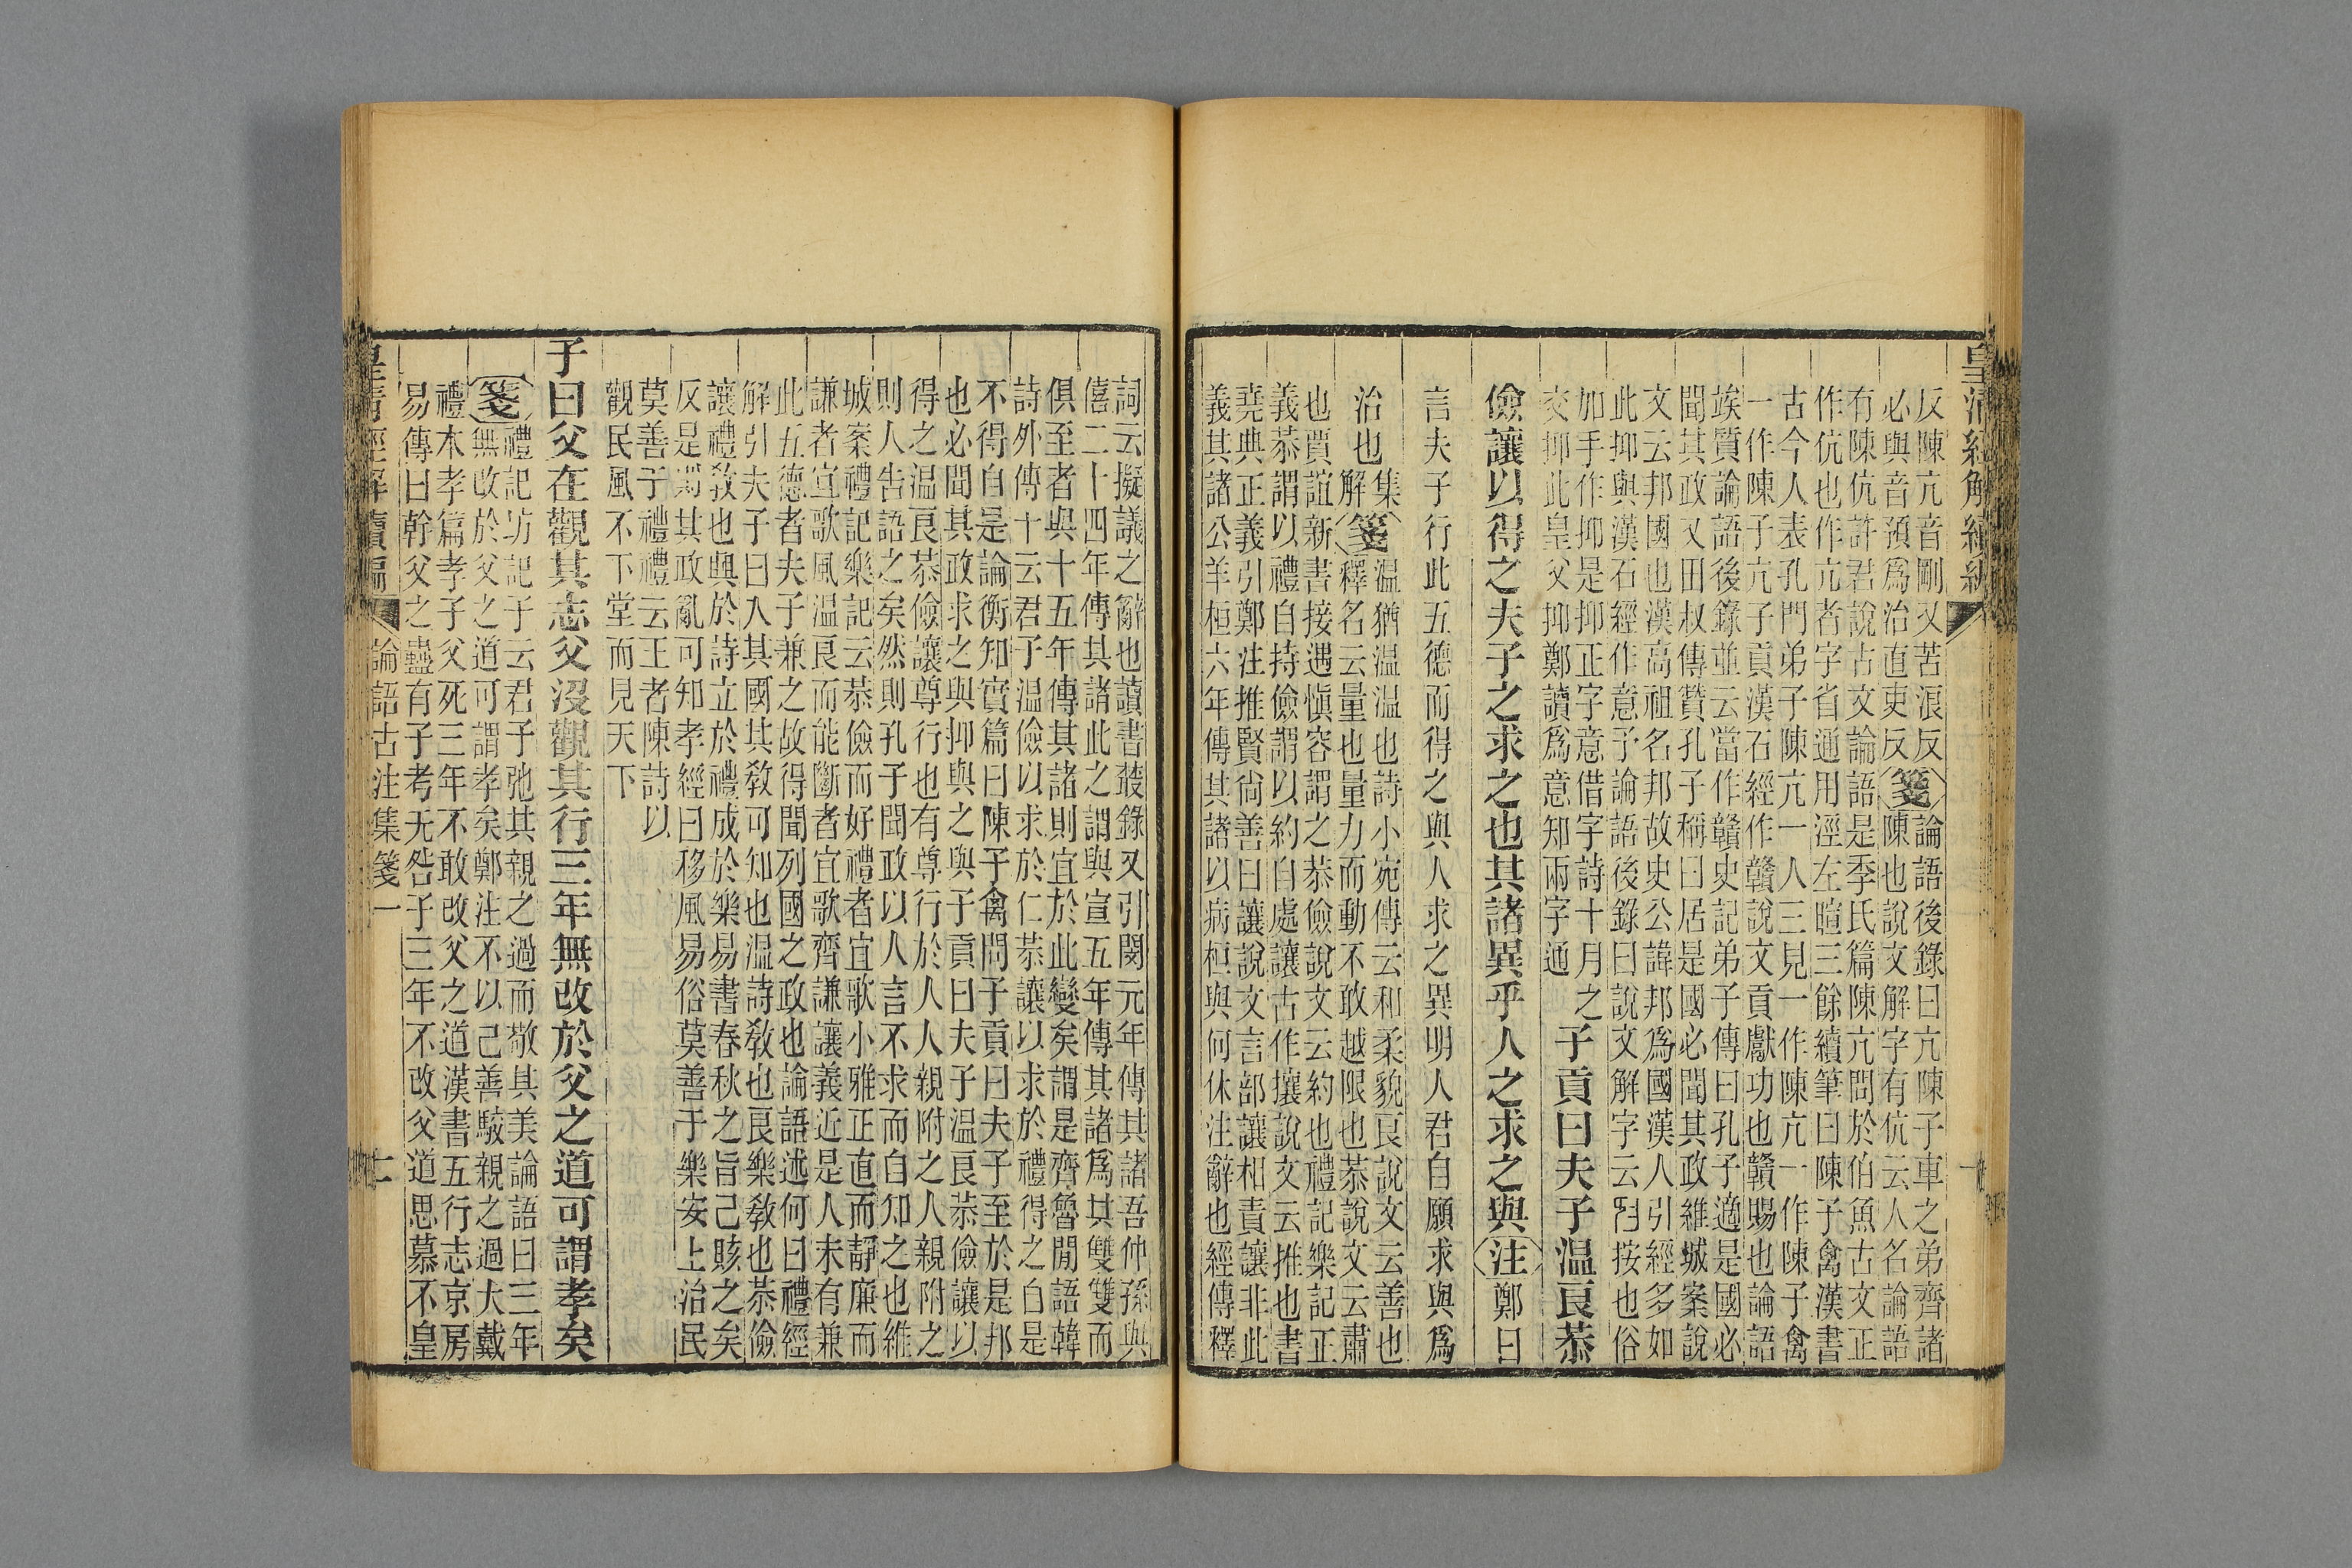 皇清經解續編
反陳亢音剛又苦浪反
必與音預爲治直吏反
箋
論語後錄曰亢陳子車之弟齊諸
陳也說文解字有伉云人名論語
有陳伉許君說古文論語是季氏篇陳亢問於伯魚古文正
作伉也作亢者字省通用涇左暄三餘續筆曰陳子禽漢書
古今人表孔門弟子陳亢一人三見一作陳亢一作陳子禽
一作陳子亢子貢漢石經作贛說文貢獻功也贛賜也論語
竢質論語後錄並云當作贛史記弟子傳曰孔子適是國必
聞其政又田叔傳贊孔子稱曰居是國必聞其政維城案說
文云邦國也漢高祖名邦故史公諱邦爲國漢人引經多如
此抑與漢石經作意予論語後錄曰說文解字云㧕按也俗
加手作抑是抑正字意借字詩十月之
交抑此皇父抑鄭讀爲意知兩字通
子貢曰夫子温良恭
儉讓以得之夫子之求之也其諸異乎人之求之與注鄭曰
言夫子行此五德而得之與人求之異明人君自願求與爲
治也集
解箋
温猶温温也詩小宛傳云和柔貌良說文云善也
釋名云量也量力而動不敢越限也恭說文云肅
也賈誼新書接遇慎容謂之恭儉說文云約也禮記樂記正
義恭謂以禮自持儉謂以約自處讓古作攘說文云推也書
堯典正義引鄭注推賢尚善曰讓說文言部讓相責讓非此
義其諸公羊桓六年傳其諸以病桓與何休注辭也經傳釋
詞云擬議之辭也讀書叢錄又引閔元年傳其諸吾仲孫與
僖二十四年傳其諸此之謂與宣五年傳其諸爲其雙雙而
俱至者與十五年傳其諸則宜於此變矣謂是齊魯閒語韓
詩外傳十云君子温儉以求於仁恭讓以求於禮得之自是
不得自是論衡知實篇曰陳子禽問子貢曰夫子至於是邦
也必聞其政求之與抑與之與子貢曰夫子温良恭儉讓以
得之温良恭儉讓尊行也有尊行於人人親附之人親附之
則人告語之矣然則孔子聞政以人言不求而自知之也維
城案禮記樂記云恭儉而好禮者宜歌小雅正直而靜廉而
謙者宜歌風温良而能斷者宜歌齊謙讓義近是人未有兼
此五德者夫子兼之故得聞列國之政也論語述何曰禮經
解引夫子曰入其國其敎可知也温詩敎也良樂敎也恭儉
讓禮敎也與於詩立於禮成於樂易書春秋之旨己賅之矣
反是焉其政亂可知孝經曰移風易俗莫善于樂安上治民
莫善于禮禮云王者陳詩以
觀民風不下堂而見天下
子曰父在觀其志父沒觀其行三年無改於父之道可謂孝矣
箋
禮記坊記子云君子弛其親之過而敬其美論語曰三年
無改於父之道可謂孝矣鄭注不以己善駮親之過大戴
禮本孝篇孝子父死三年不敢改父之道漢書五行志京房
易傳曰幹父之蠱有子考无咎子三年不改父道思慕不皇
皇清經解續編
論語古注集箋一
七